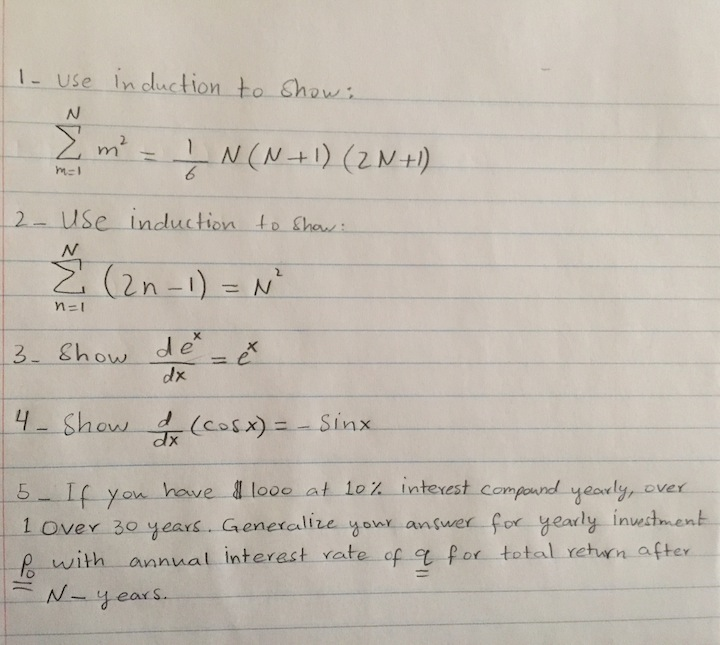 1- Use induction to Show:
N
Σ m² = 1/6 N(N+1)(2N+1)
m=1
2- Use induction to show:
N
Σ (2n-1) = N²
n=1
3- Show de^x/dx = e^x
4- Show d/dx (cosx) = - Sinx
5- If you have $1000 at 10% interest compound yearly, over
1 Over 30 years. Generalize your answer for yearly investment
P₀ with annual interest rate of q for total return after
N- years.